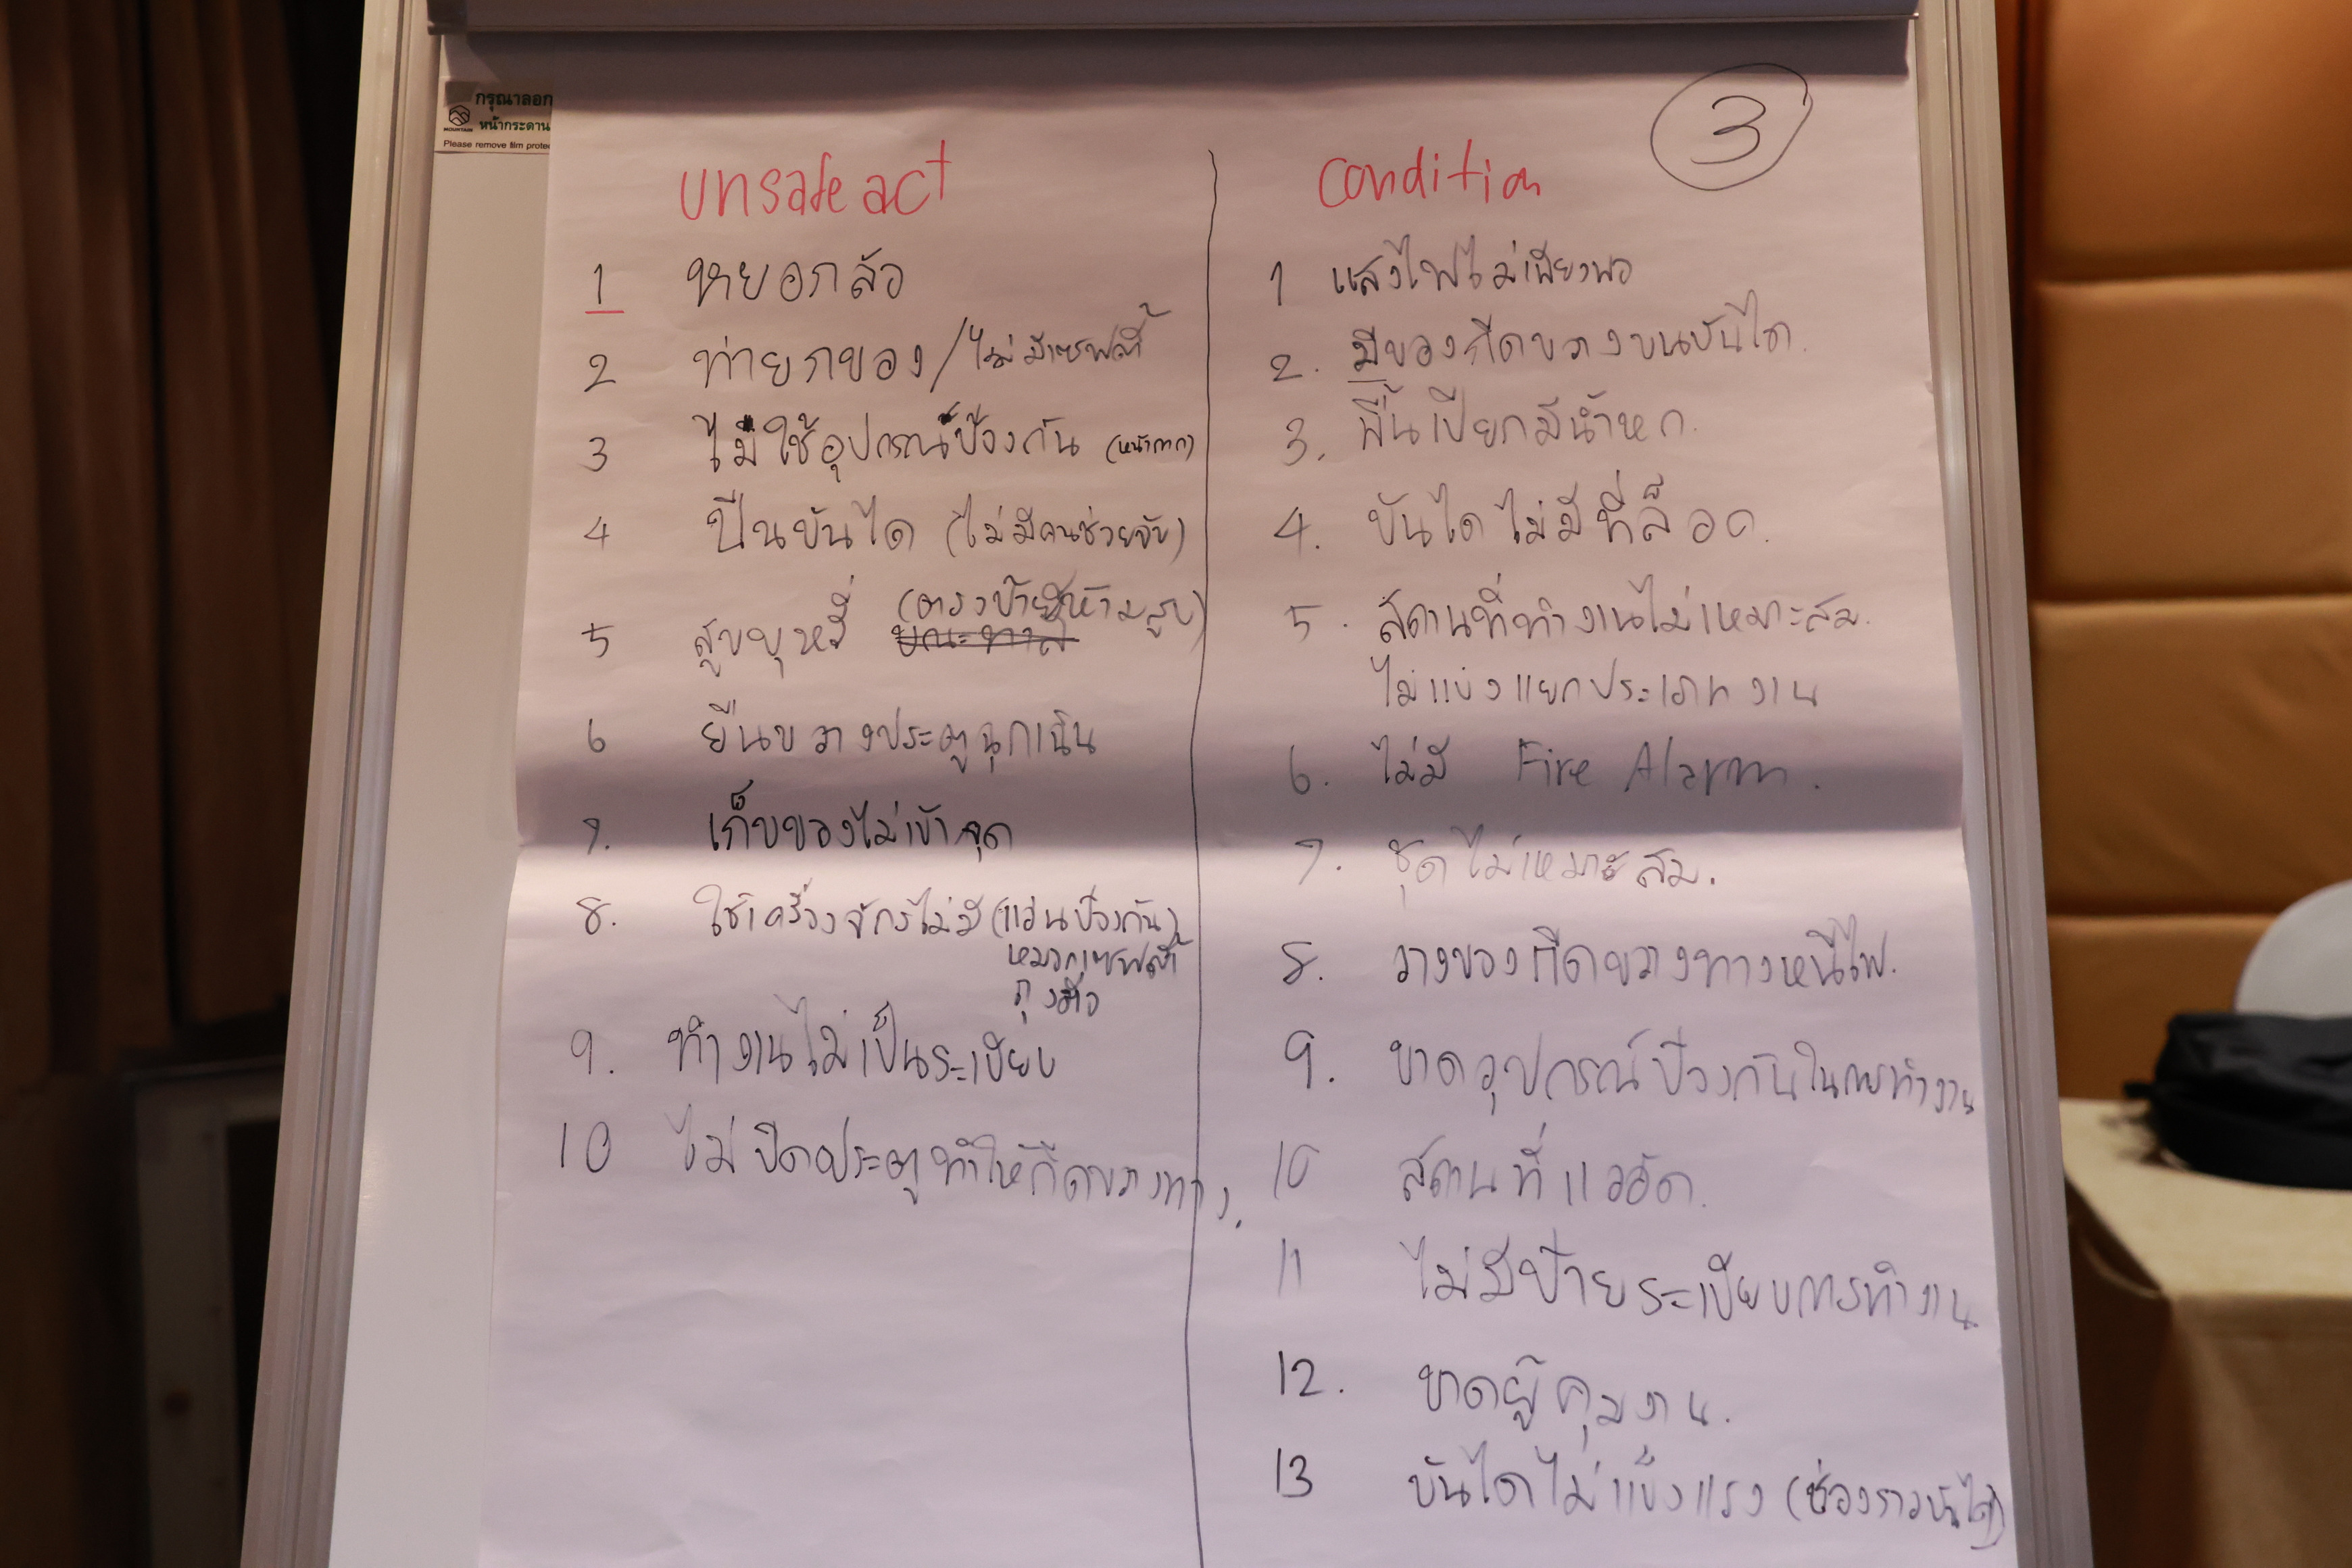 กรุณาลอก
หน้ากระดาน
MOUNTAIN
Please remove film protec
3
unsafe act
1 หยอกล้อ
2 ท่ายกของ/ไม่มีเซฟตี้
3 ไม่ใช้อุปกรณ์ป้องกัน (หน้ากาก)
4 ปีนบันได (ไม่มีคนช่วยจับ)
5 สูบบุหรี่ (ตรงป้ายห้ามสูบ)
6 ยืนขวางประตูฉุกเฉิน
7. เก็บของไม่เข้าจุด
8. ใช้เครื่องจักรไม่มี (แว่นป้องกัน)
หมวกเซฟตี้
ถุงมือ
9. ทำงานไม่เป็นระเบียบ
10 ไม่ปิดประตูทำให้กีดขวางทาง.
condition
1 แสงไฟไม่เพียงพอ
2. มีของกีดขวางบนบันได.
3. พื้นเปียกมีน้ำหก.
4. บันไดไม่มีที่ล็อค.
5. สถานที่ทำงานไม่เหมาะสม.
ไม่แบ่งแยกประเภทงาน
6. ไม่มี Fire Alarm.
7. ชุดไม่เหมาะสม.
8. วางของกีดขวางทางหนีไฟ.
9. ขาดอุปกรณ์ป้องกันในการทำงาน
10 สถานที่แออัด.
11 ไม่มีป้ายระเบียบการทำงาน
12. ขาดผู้คุมงาน.
13 บันไดไม่แข็งแรง (ช่องราวบันได)